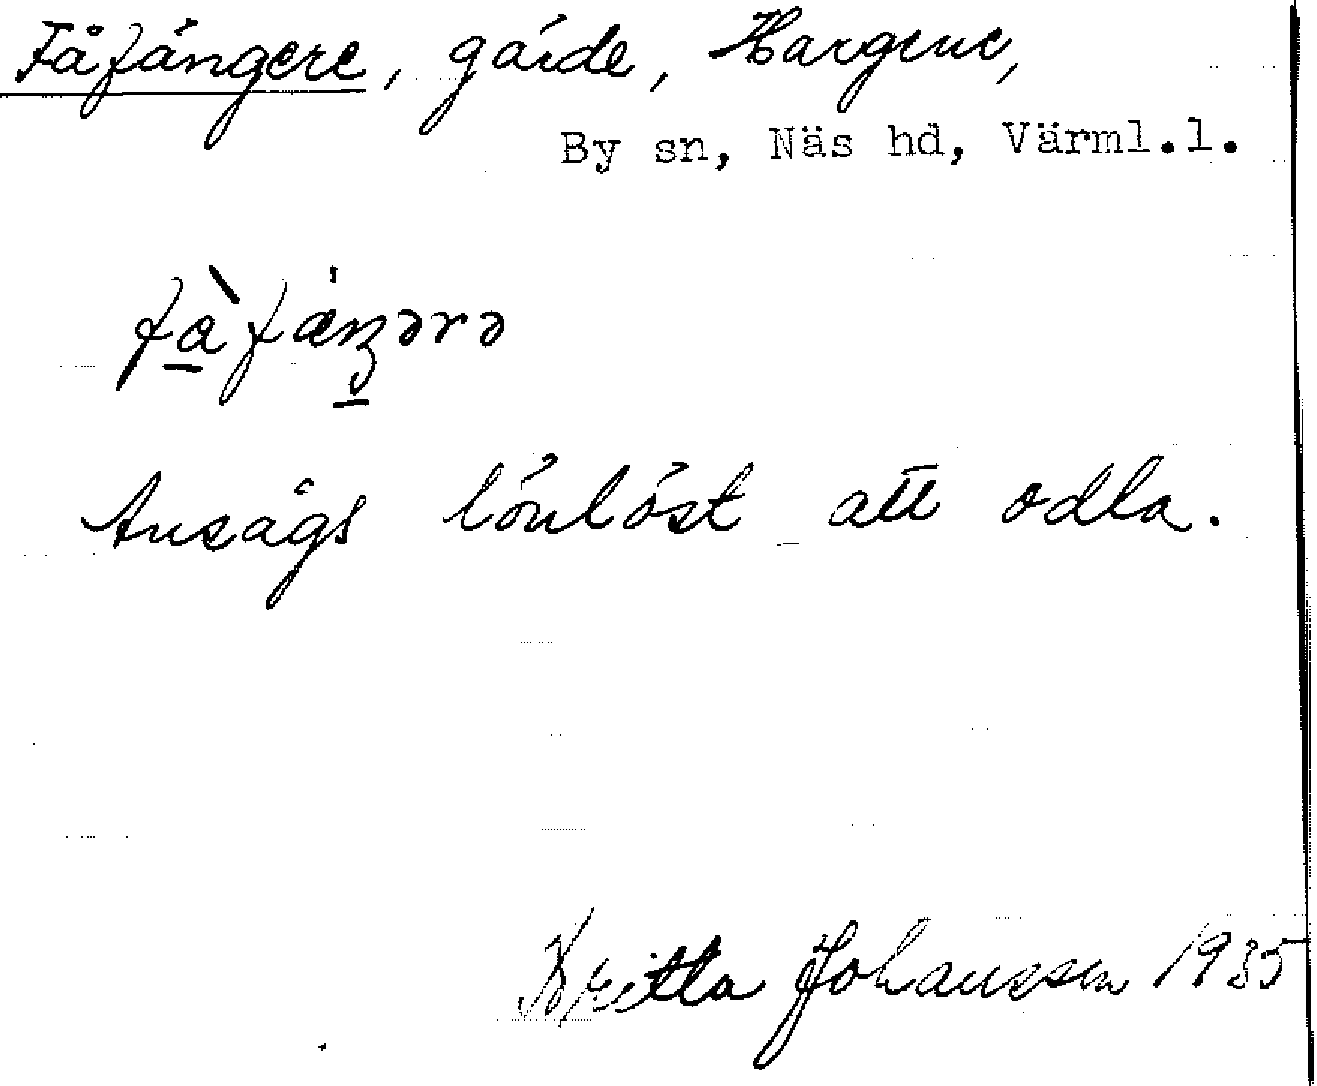 Fåfängere, gärde, Hargene,
By sn, Näs hd, Värml.l.
Ansågs lönlöst att odla.
Britta Johansson 1935